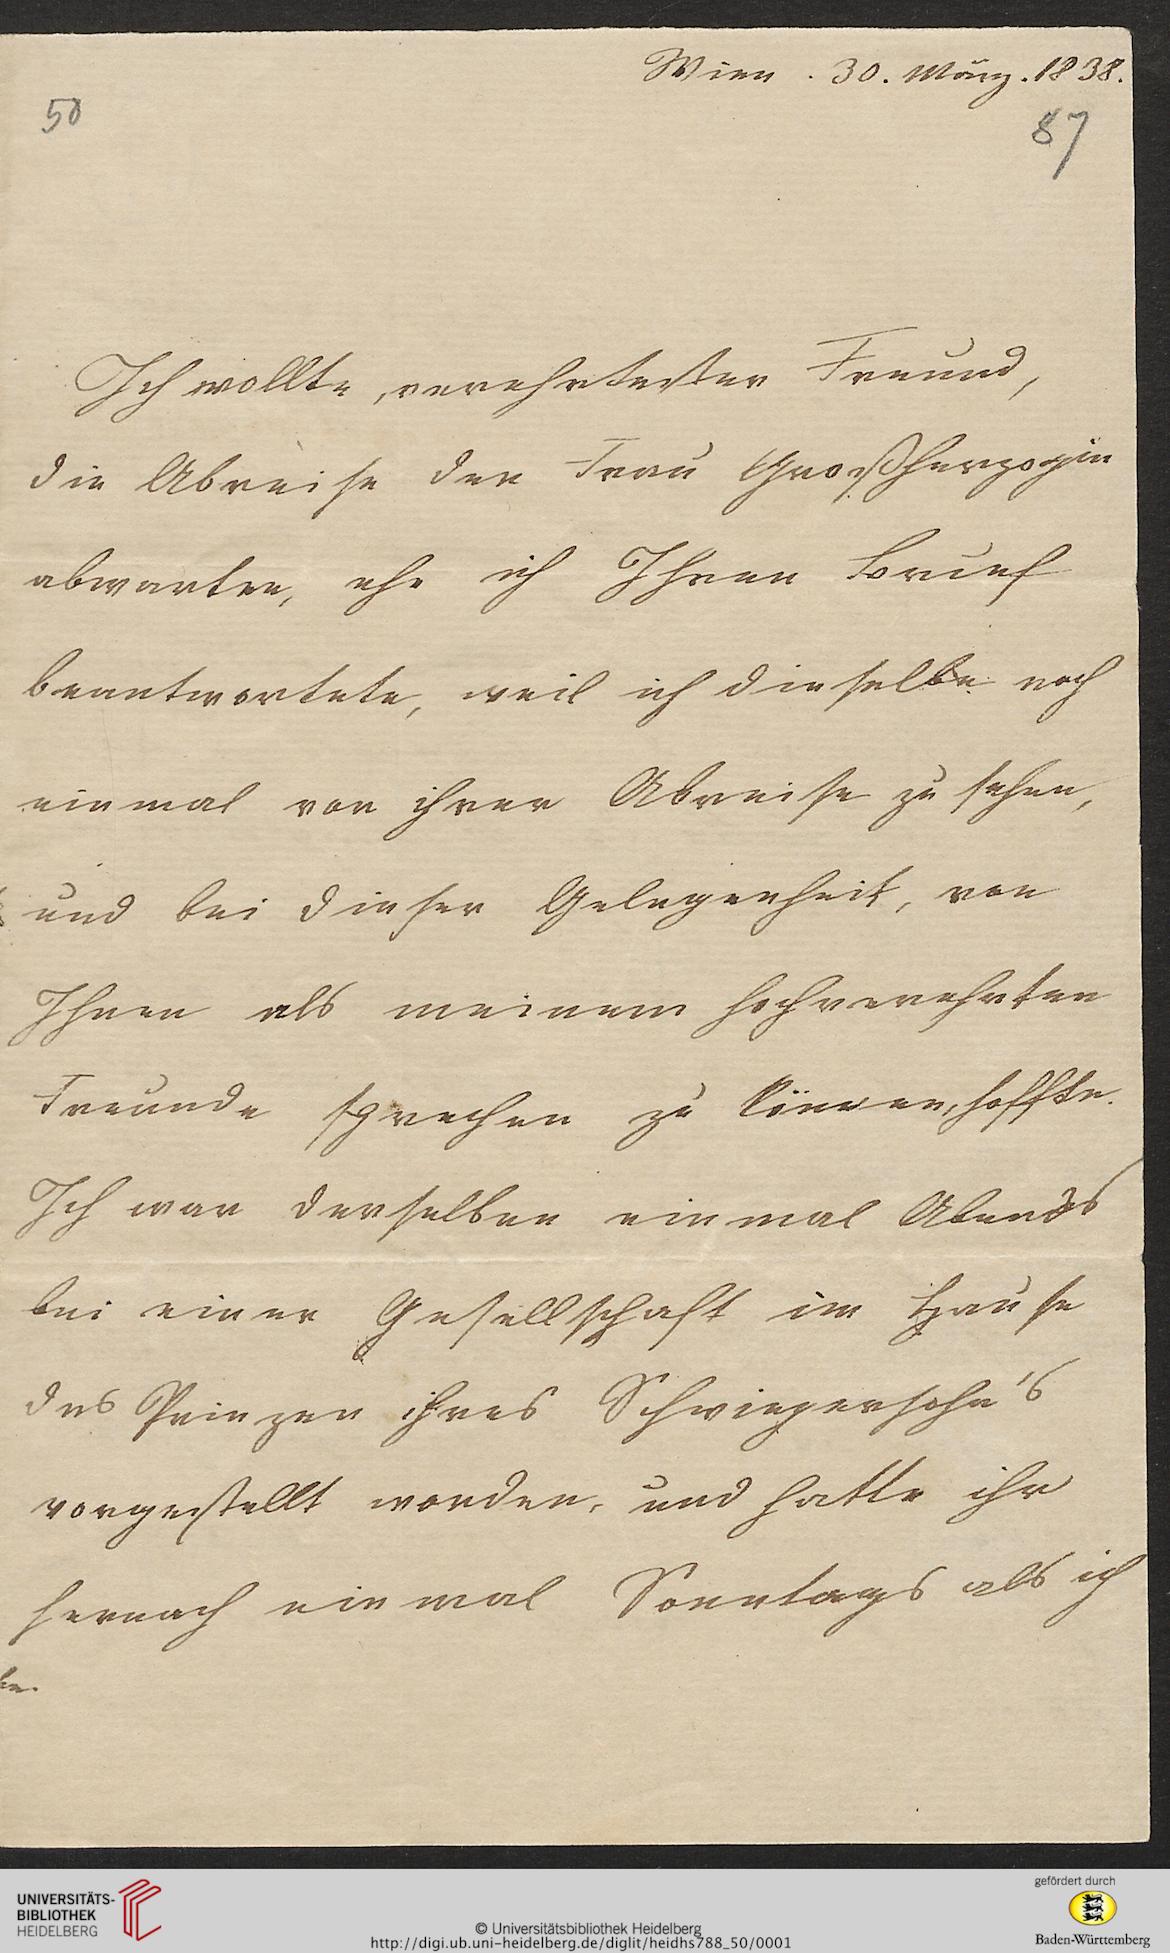 Wien . 30. März . 1838.
50
87
Ich wollte, verehrtester Freund,
die Abreise der Frau Großherzogin
abwarten, ehe ich Ihren Brief
beantwortete, weil ich dieselbe noch
einmal vor ihrer Abreise zu sehen,
und bei dieser Gelegenheit, von
Ihnen als meinem hochverehrten
Freunde sprechen zu können, hoffte.
Ich war derselben einmal Abends
bei einer Gesellschaft im Hause
des Prinzen ihres Schwiegersohn's
vorgestellt worden, und hatte ihr
hernach einmal Sonntags als ich
UNIVERSITÄTS-
BIBLIOTHEK
HEIDELBERG
© Universitätsbibliothek Heidelberg
http://digi.ub.uni-heidelberg.de/diglit/heidhs788_50/0001
gefördert durch
Baden-Württemberg